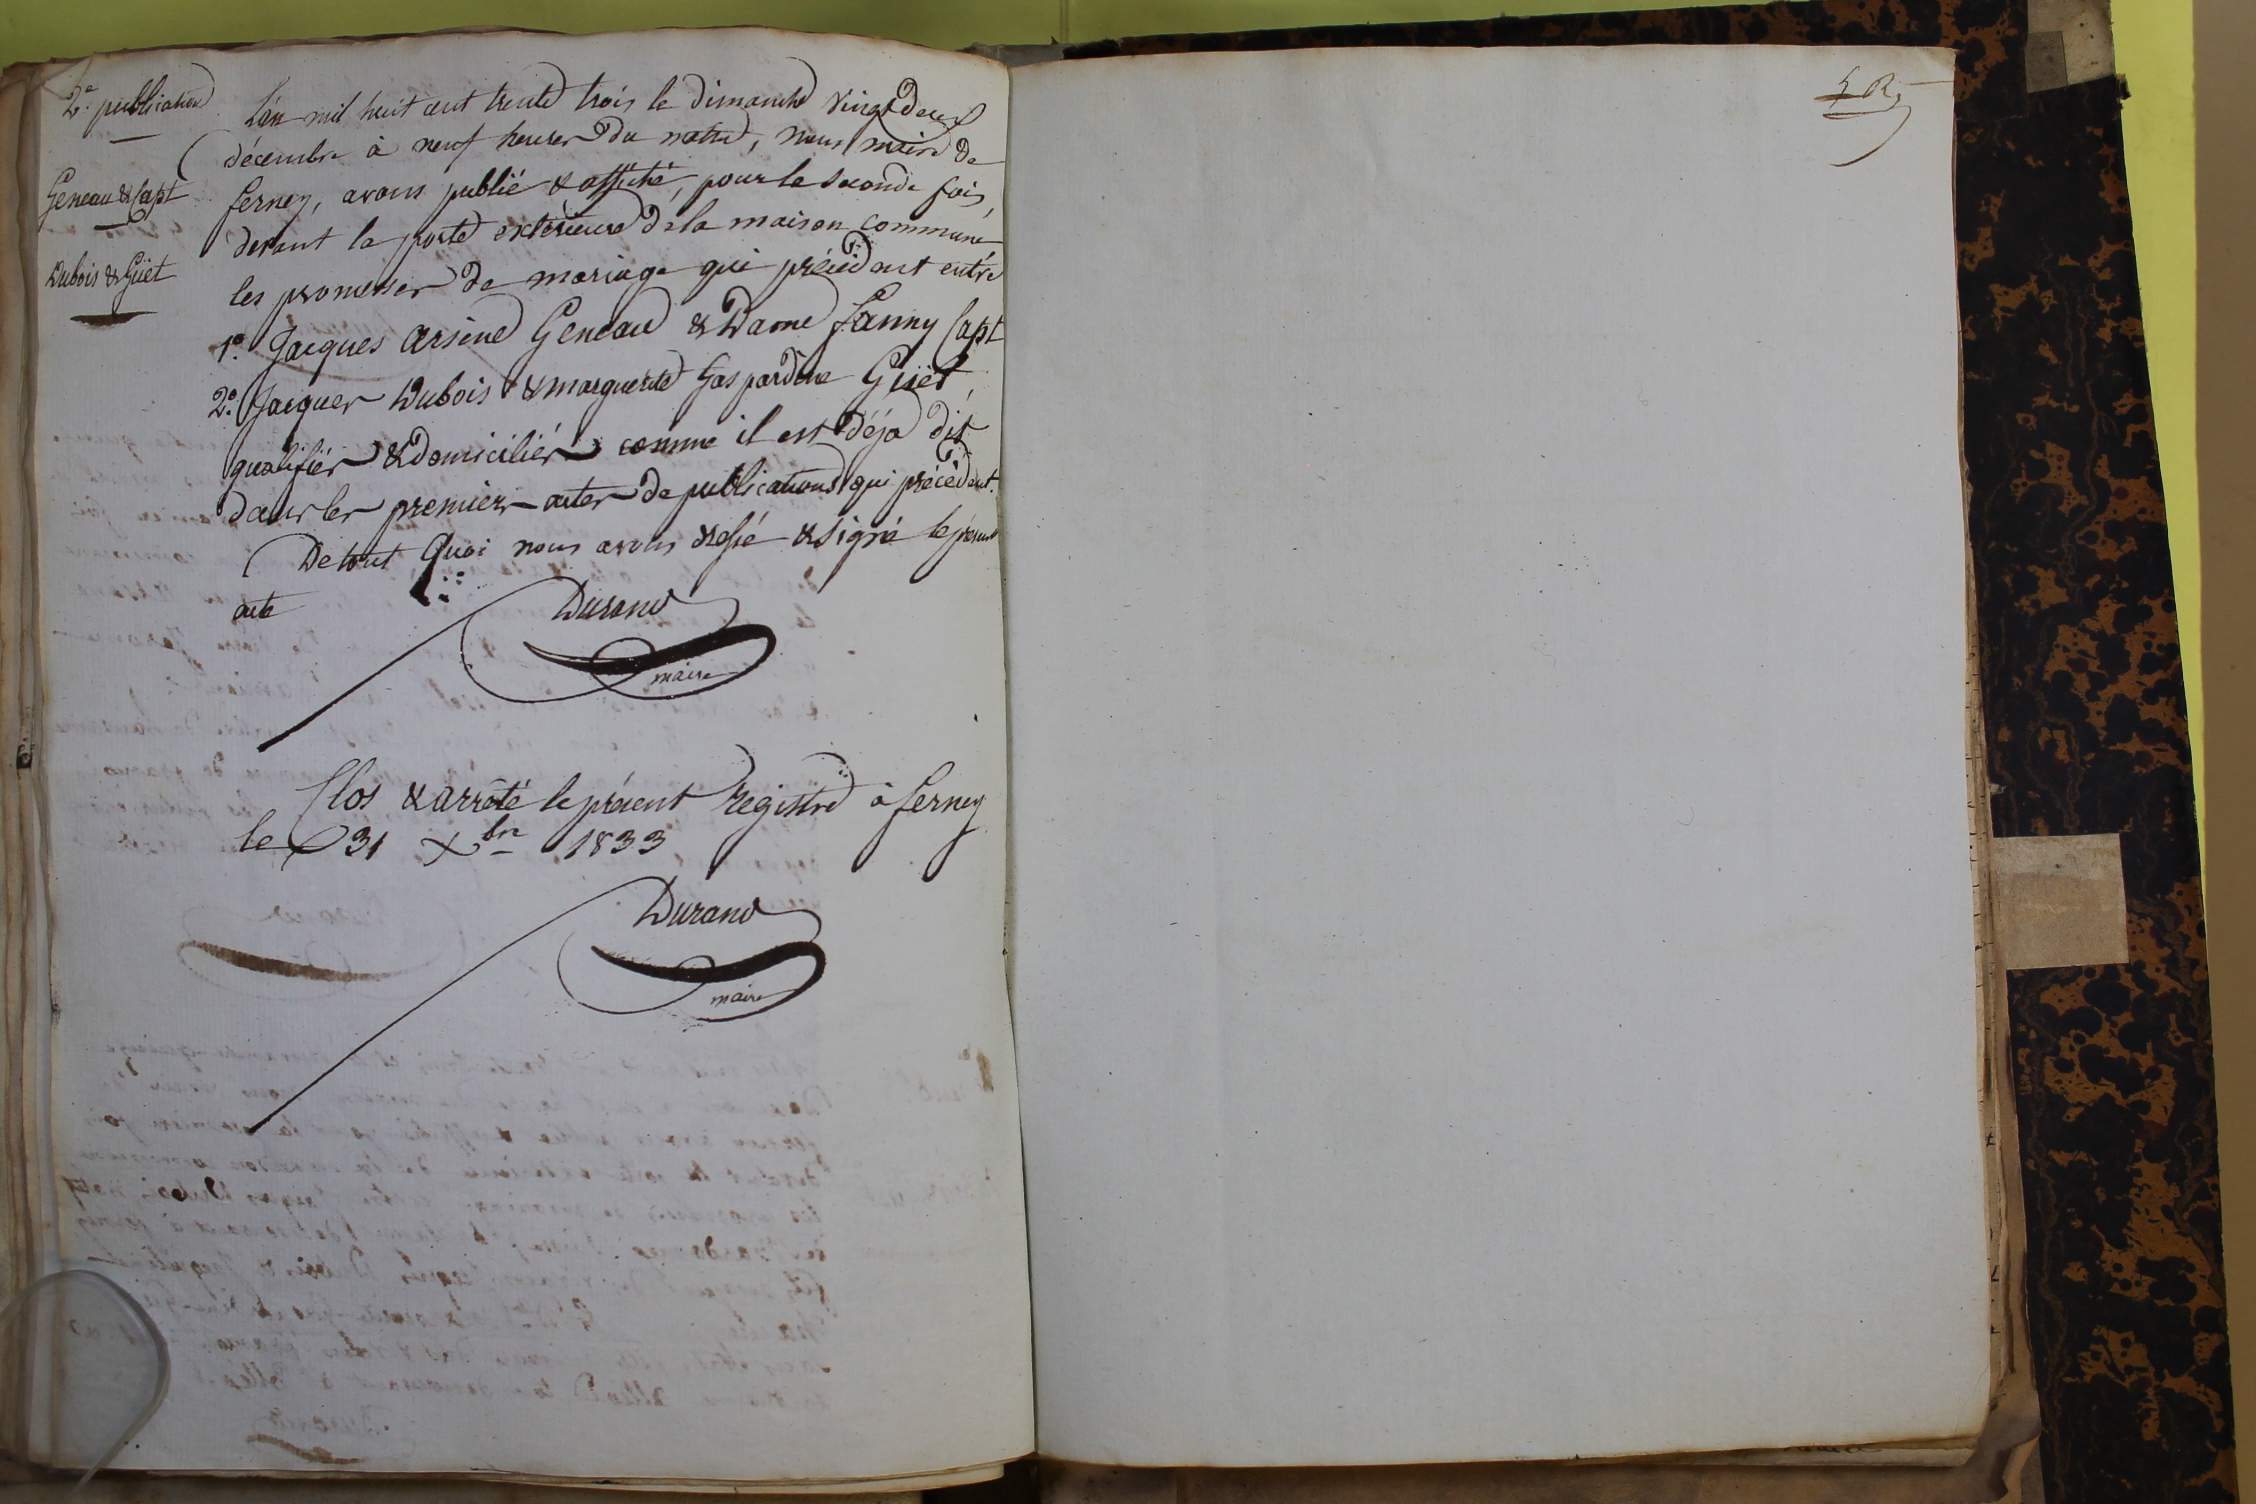 2e. publication
Geneau & Capt
Dubois & Guët
L'an mil huit cent trente trois le dimanche vingt deux
décembre à neuf heures du matin, nous maire de
ferney, avons publié & affiché, pour la seconde fois,
devant la porte extérieure de la maison commune
les promesses de mariage qui précédent entre
1o. Jacques Arsène Geneau & Dame fanny Capt
2o. Jacques Dubois & marguerite Gaspardine Guët,
qualifiés & domiciliés comme il est déja dit
dans les premiers actes de publications qui précédent.
De tout quoi nous avons dressé & signé le présent
acte
Durand
maire
Clos & arrêté le présent Registre à ferney
le 31 Xbre 1833
Durand
maire